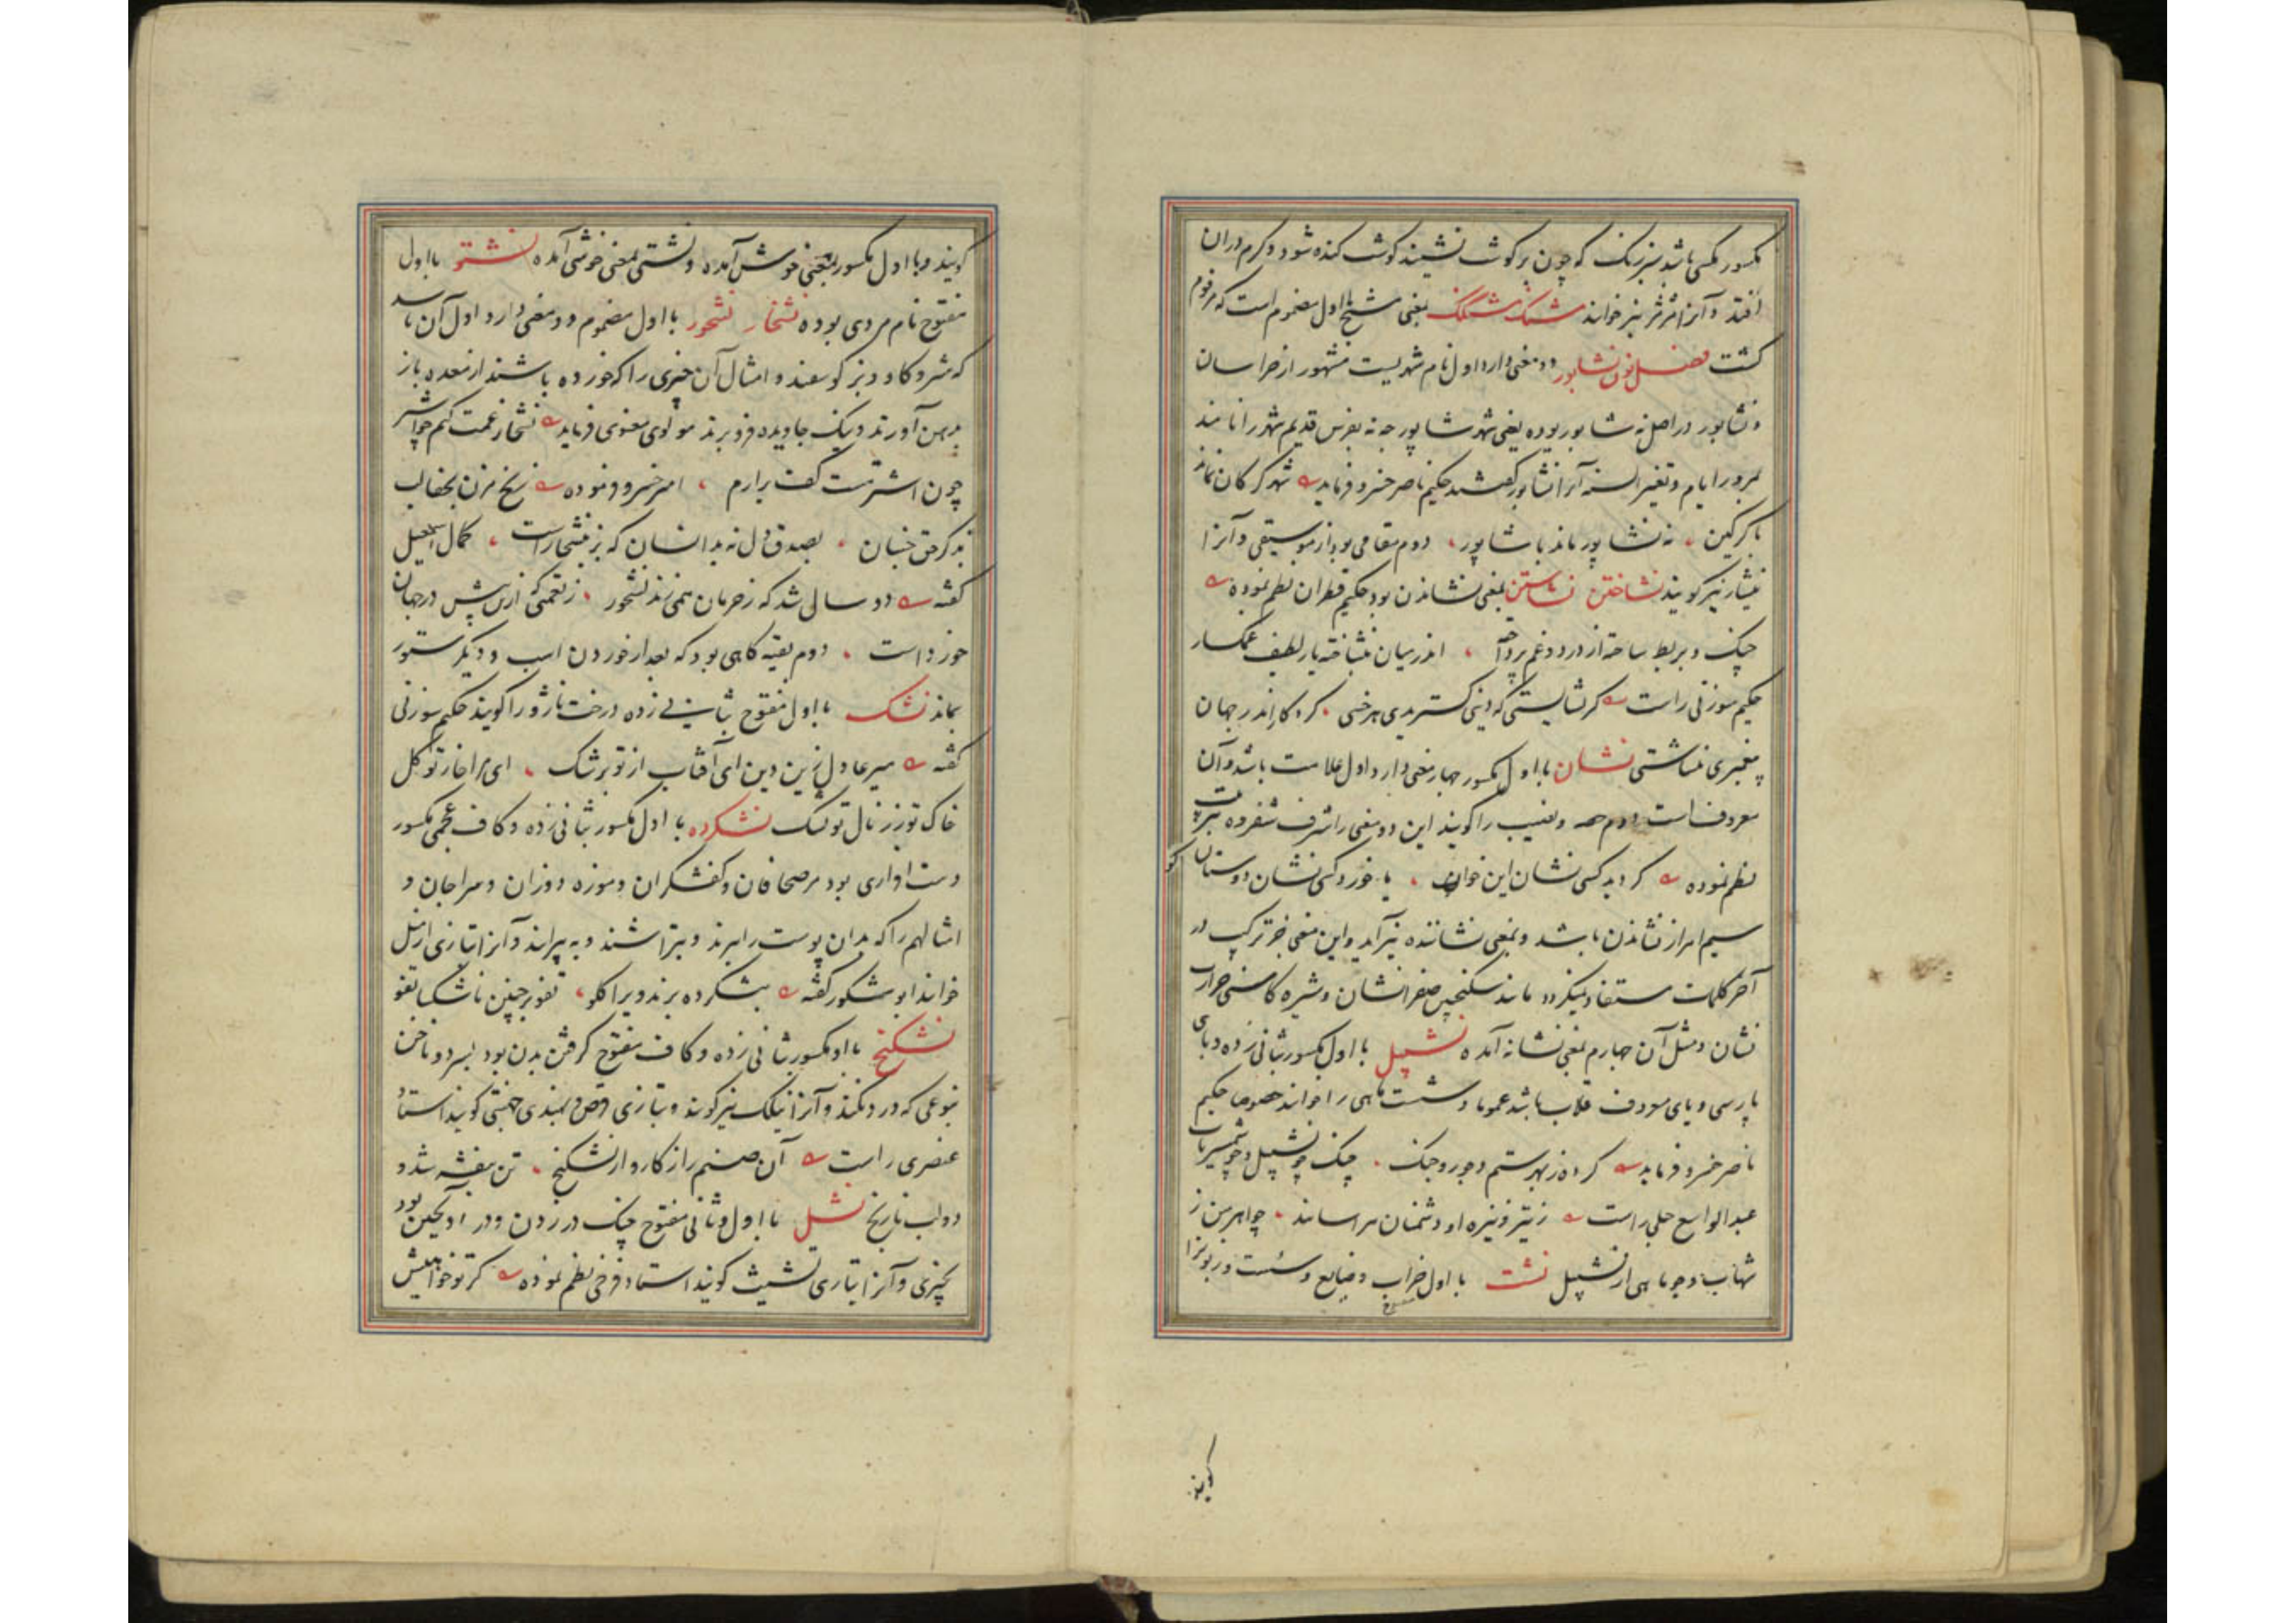 مکسور مکسی باشد سبز رنک که چون بر کوشت نشیند کوشت کنده شود و کرم دران
افتد و آنرا نیز خوانند شنک شنگ بمعنی شخ اول مضموم است که مرقوم
کشت فصل نون نشابور دو معنی دارد اول نام شهریست مشهور از خراسان
و نشابور در اصل نه شابور بوده یعنی شهر شاپور چه نه بفرس قدیم شهر را نامند
بمرور ایام و تغیر السنه آنرا نشابور کفتند حکیم ناصر خسرو فرماید شهر کرکان نماند
با کرکین نه نشاپور ماند با شاپور دوم مقامی بود از موسیقی و آنرا
نیشابور نیز کویند نشاختن نشاستن بمعنی نشاندن بود حکیم قطران نظم نموده
چنک و بربط ساخته از درد و غم پرداخته اندر میان بنشاخته یار لطیف غمکسار
حکیم سوزنی راست کر نشایستی که دینی کستریدی هر خسی کردکار اندر جهان
پیغمبری ننشاستی نشان با اول مکسور چهار معنی دارد اول علامت باشد و آن
معروف است دوم حصه و نصیب را کویند این دو معنی را شرف شفروه بترتیب
نظم نموده کر دید کسی نشان این خوان یا خورد کسی نشان دوستان کو
سیم امر از نشاندن باشد و بمعنی نشاننده نیز آید و این معنی جز ترکیب در
آخر کلمات مستفاد نمیکردد مانند سکنجبین صفرانشان و شیره کاسنی حرارت
نشان و مثل آن چهارم بمعنی نشانه آمده نشپیل با اول مکسور بثانی زده و بای
پارسی و یای معروف قلاب باشد عموما و شست ماهی را خوانند خصوصا حکیم
ناصر خسرو فرماید کرده ز بهر ستم و جور و جنک چنک چو نشپیل و چو شمشیر ناب
عبد الواسع جبلی راست ز تیر و نیزه او دشمنان هراسانند چو اهرمن ز
شهاب و چو ماهی از نشپیل نشت با اول مفتوح خراب و ضایع و سست و زبون را
کویند
کویند و با اول مکسور بمعنی خوش آمده و نشتی بمعنی خوشی آمده نشتو با اول
مفتوح نام مردی بوده نشخار نشخور با اول مضموم دو معنی دارد اول آن باشد
که شتر و کاو و بز و کوسفند و امثال آن چیزی را که خورده باشند از معده باز
بدهن آورند و نیک جاویده فرو برند مولوی معنوی فرماید نشخار غمت کنم چو اشتر
چون اشتر مست کف برارم امیر خسرو فرموده زنخ مزن بخفا لب
بذکر حق جنبان بصدق دل نه بدانسان که بز بنشخار است کمال اسمعیل
کفته دو سالی شد که زحرمان نمی زند نشخور ز نعمتی که ازین پیش در جهان
خورد است دوم بقیه کاهی بود که بعد از خوردن اسب و دیکر ستور
بماند نشک با اول مفتوح بثانی زده درخت ناژو را کویند حکیم سوزنی
کفته میر عادل زین دین ای آفتاب از تو برشک ای مرا خار تو کل
خاک تو زر نال تو نشک نشکرده با اول مکسور بثانی زده و کاف عجمی مکسور
دست اواری بود مر صحافان و کفشکران و موزه دوزان و سراجان و
امثالهم را که بدان پوست را ببرند و بتراشند و به پیرایند و آنرا بتازی ازمیل
خوانند ابو شکور کفته بنشکرده برند ویرا کلو تفو بر چنین ناشکیبا تفو
نشکنج با اول مکسور بثانی زده و کاف مفتوح کرفتن بدن بود بسر دو ناخن
بنوعی که درد کند و آنرا نیلک نیز کویند و بتازی قرص و بهندی چهنتی کویند استاد
عنصری راست آن صنم را ز کاز و از نشکنج تن بنفشه شد و
دو لب نارنج نشل با اول و ثانی مفتوح چنک در زدن و در آویختن بود
بچیزی و آنرا بتازی تشبث کویند استاد فرخی نظم نموده کر تو خواهیش